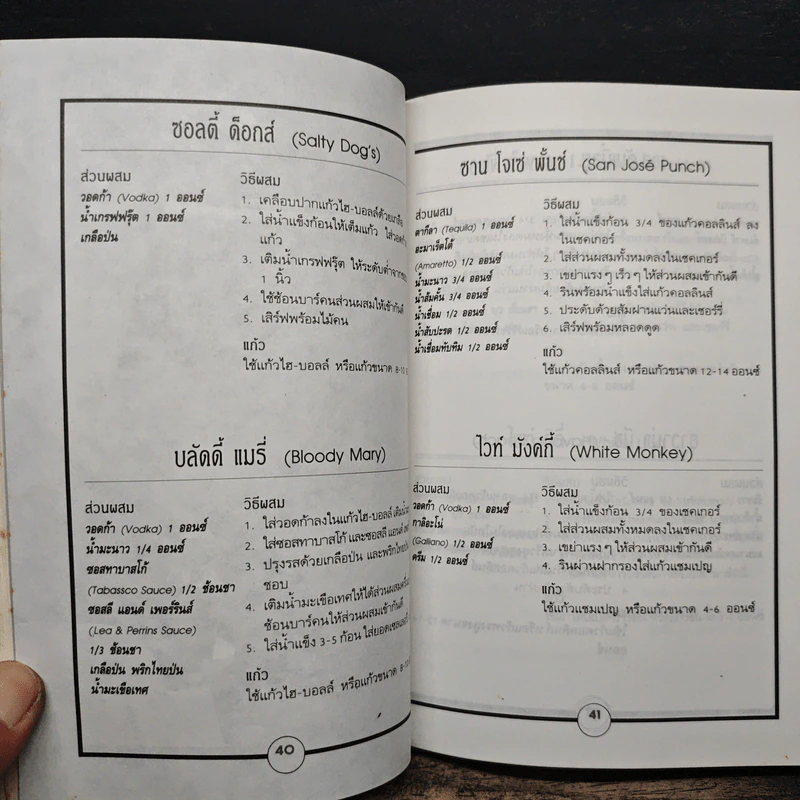 ซอลตี้ ด็อกส์ (Salty Dog's)
ส่วนผสม
วอดก้า (Vodka) 1 ออนซ์
น้ำเกรฟฟรุ๊ต 1 ออนซ์
เกลือป่น
วิธีผสม
1. เคลือบปากแก้วไฮ-บอลล์ด้วยเกลือ
2. ใส่น้ำแข็งก้อนให้เต็มแก้ว ใส่วอดก้า
แก้ว
3. เติมน้ำเกรฟฟรุ๊ต ให้ระดับต่ำจาก
1 นิ้ว
4. ใช้ช้อนบาร์คนส่วนผสมให้เข้ากันดี
5. เสิร์ฟพร้อมไม้คน
แก้ว
ใช้แก้วไฮ-บอลล์ หรือแก้วขนาด 8-10
บลัดดี้ แมรี่ (Bloody Mary)
ส่วนผสม
วอดก้า (Vodka) 1 ออนซ์
น้ำมะนาว 1/4 ออนซ์
ซอสทาบาสโก้
(Tabassco Sauce) 1/2 ช้อนชา
ซอสลี แอนด์ เพอร์รินส์
(Lea & Perrins Sauce)
1/3 ช้อนชา
เกลือป่น พริกไทยป่น
น้ำมะเขือเทศ
วิธีผสม
1. ใส่วอดก้าลงในแก้วไฮ-บอลล์ เติมน้ำ
2. ใส่ซอสทาบาสโก้ และซอสลี แอนด์
3. ปรุงรสด้วยเกลือป่น และพริกไทย
ชอบ
4. เติมน้ำมะเขือเทศให้ได้ส่วนผสม
ช้อนบาร์คนให้ส่วนผสมเข้ากันดี
5. ใส่น้ำแข็ง 3-5 ก้อน ใส่ยอดเซล
แก้ว
ใช้แก้วไฮ-บอลล์ หรือแก้วขนาด 8-10
40
ซาน โจเซ่ พั้นช์ (San José Punch)
ส่วนผสม
ตากีลา (Tequila) 1 ออนซ์
อะมาเร็ตโต้
(Amaretto) 1/2 ออนซ์
น้ำมะนาว 3/4 ออนซ์
น้ำส้มคั้น 3/4 ออนซ์
น้ำเชื่อม 1/2 ออนซ์
น้ำสับปะรด 1/2 ออนซ์
น้ำเชื่อมทับทิม 1/2 ออนซ์
วิธีผสม
1. ใส่น้ำแข็งก้อน 3/4 ของแก้วคอลลินส์ ลง
ในเชคเกอร์
2. ใส่ส่วนผสมทั้งหมดลงในเชคเกอร์
3. เขย่าแรงๆ เร็วๆ ให้ส่วนผสมเข้ากันดี
4. รินพร้อมน้ำแข็งใส่แก้วคอลลินส์
5. ประดับด้วยส้มฝานแว่นและเชอร์รี่
6. เสิร์ฟพร้อมหลอดดูด
แก้ว
ใช้แก้วคอลลินส์ หรือแก้วขนาด 12-14 ออนซ์
ไวท์ มังค์กี้ (White Monkey)
ส่วนผสม
วอดก้า (Vodka) 1 ออนซ์
กาลิอะโน่
(Galliano) 1/2 ออนซ์
ครีม 1/2 ออนซ์
วิธีผสม
1. ใส่น้ำแข็งก้อน 3/4 ของเชคเกอร์
2. ใส่ส่วนผสมทั้งหมดลงในเชคเกอร์
3. เขย่าแรงๆ ให้ส่วนผสมเข้ากันดี
4. รินผ่านฝากรองใส่แก้วแชมเปญ
แก้ว
ใช้แก้วแชมเปญ หรือแก้วขนาด 4-6 ออนซ์
41